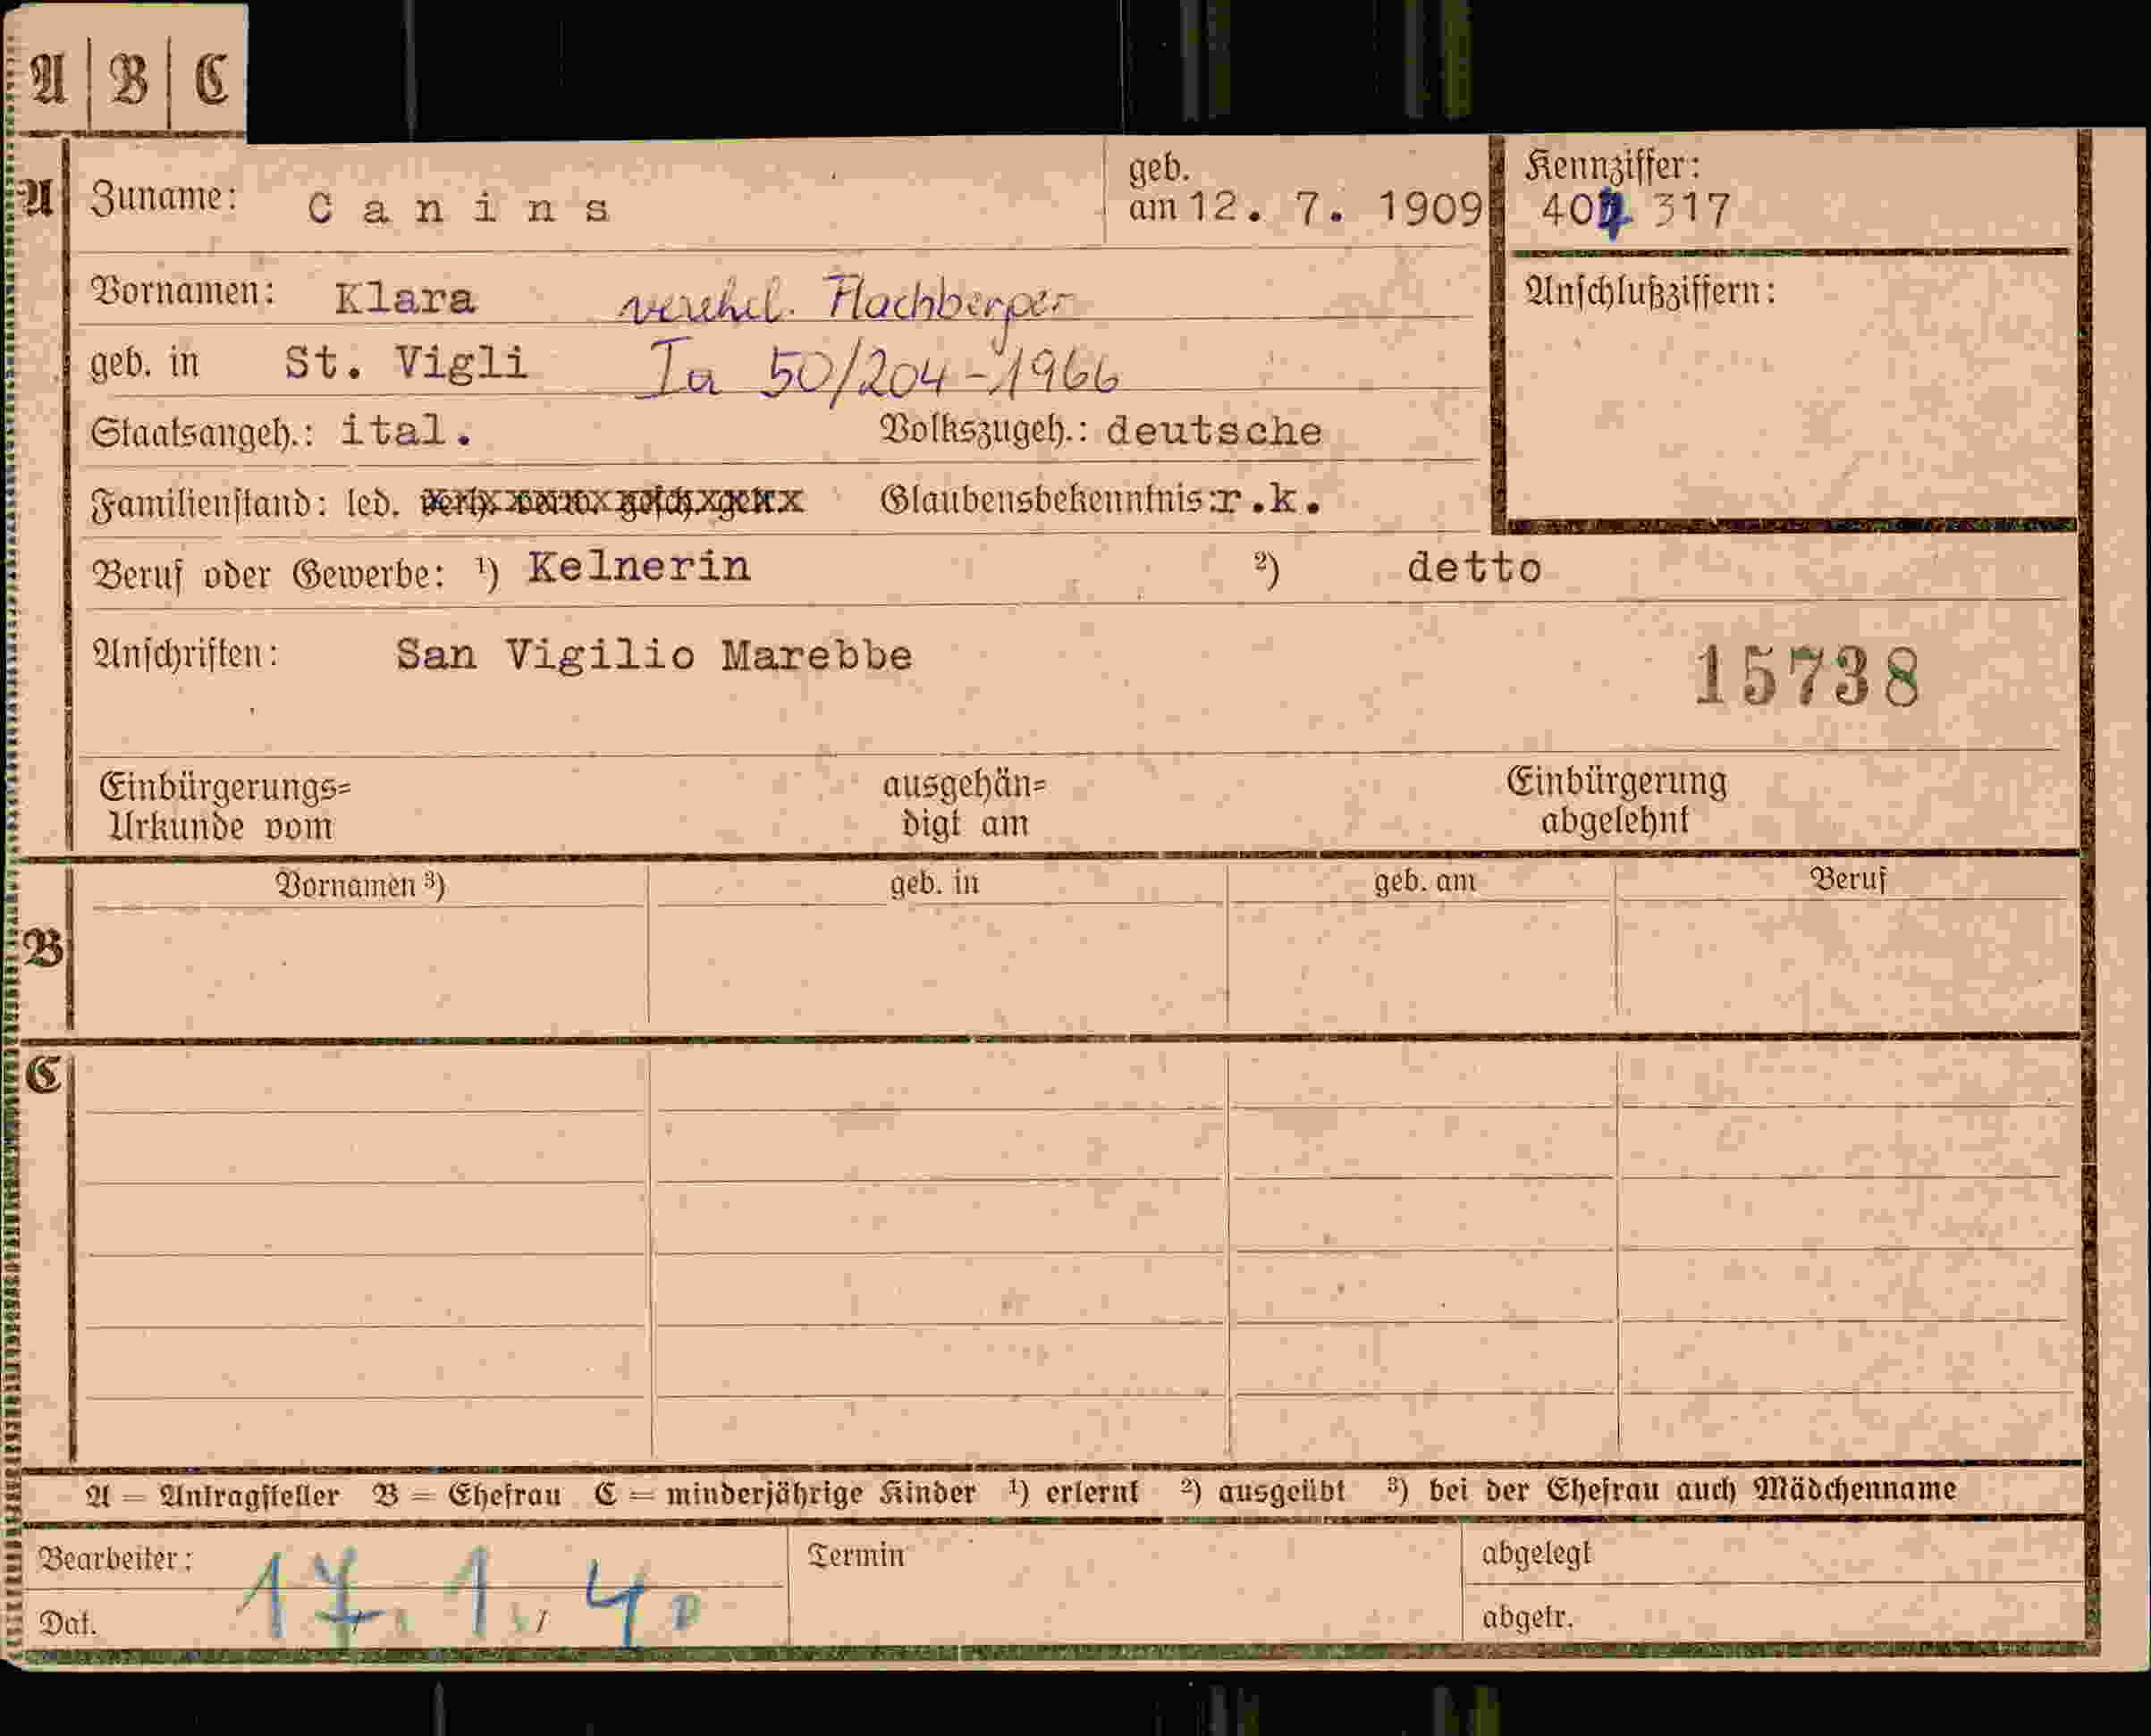 A | B | C
A Zuname: Canins geb. am 12. 7. 1909 Kennziffer: 317
Vornamen: Klara verehel. Flachberger Anschlußziffern:
geb. in St. Vigli Ia 50/204-1966
Staatsangeh.: ital. Volkszugeh.: deutsche
Familienstand: led. verh. verw. gesch. getr. Glaubensbekenntnis: r.k.
Beruf oder Gewerbe: ¹) Kelnerin ²) detto
Anschriften: San Vigilio Marebbe 15738
Einbürgerungs= ausgehän= Einbürgerung
Urkunde vom digt am abgelehnt
Vornamen ³) geb. in geb. am Beruf
B
C
A = Antragsteller B = Ehefrau C = minderjährige Kinder ¹) erlernt ²) ausgeübt ³) bei der Ehefrau auch Mädchenname
Bearbeiter: Termin abgelegt
Dat. 17. 1. 40 abgetr.